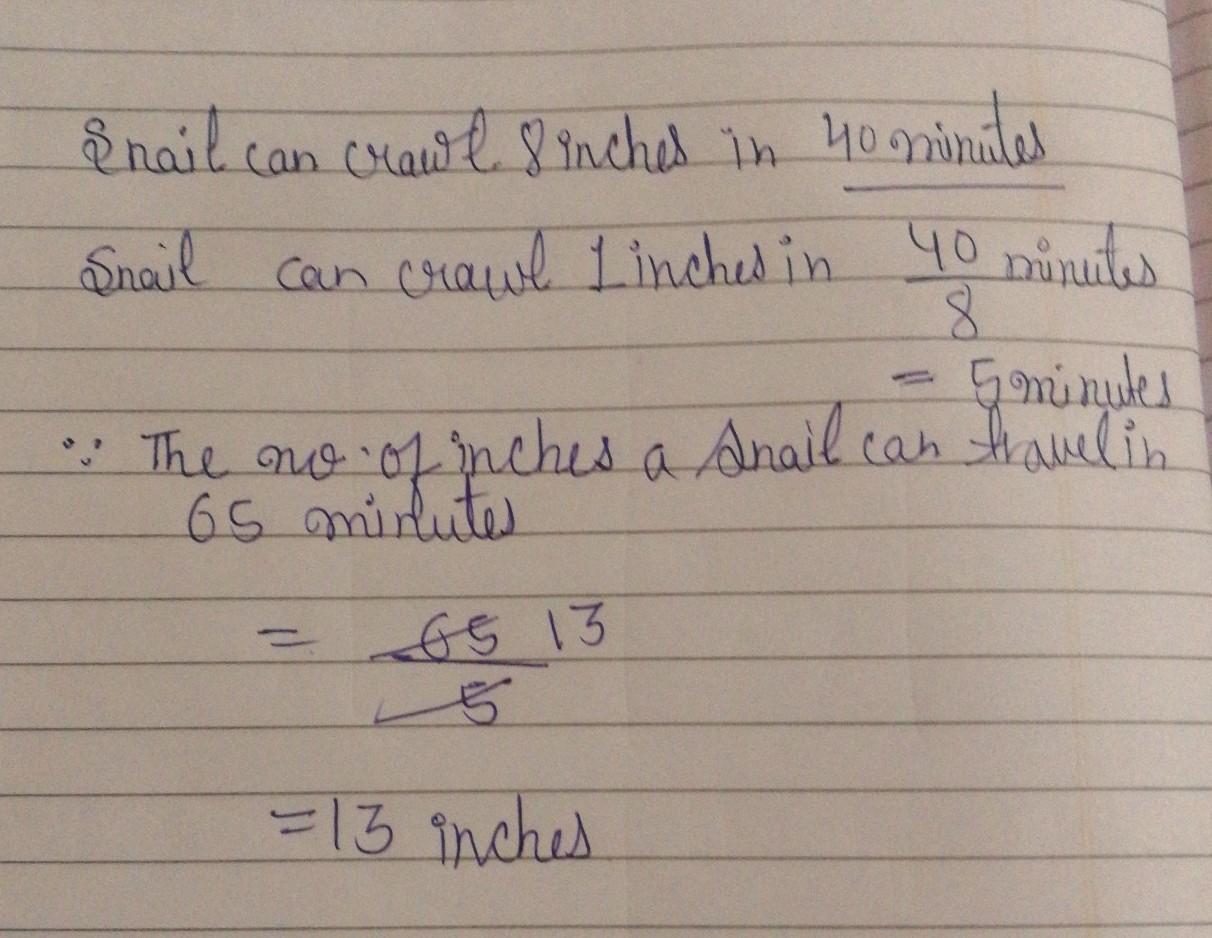 Snail can crawl 8 inches in 40 minutes
Snail can crawl 1 inches in 40/8 minutes
= 5 minutes
∵ The no. of inches a snail can travel in
65 minutes
= 65/5 13
= 13 inches